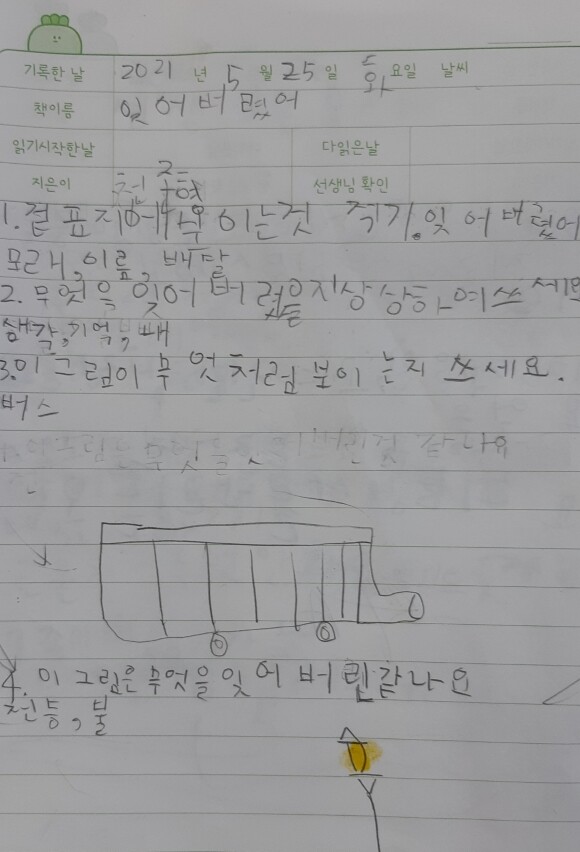 기록한 날 2021 년 5 월 25 일 화 요일 날씨
책이름 잊어버렸어
읽기시작한날 다읽은날
지은이 선생님 확인
1. 겉표지에서 이는것 적기. 잊어버렸어
모래, 이름, 배달
2. 무엇을 잊어버렸을지 상상하여 쓰세요
생각, 기억, 빼
3. 이 그림이 무엇처럼 보이는지 쓰세요.
버스
같나요
4. 이 그림은 무엇을 잊어버린같나요
전등, 불